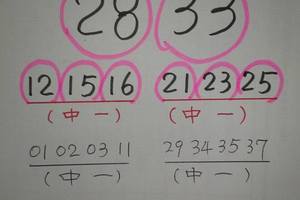 28 33
12 15 16 21 23 25
(中一) (中一)
01 02 03 11 29 34 35 37
(中一) (中一)